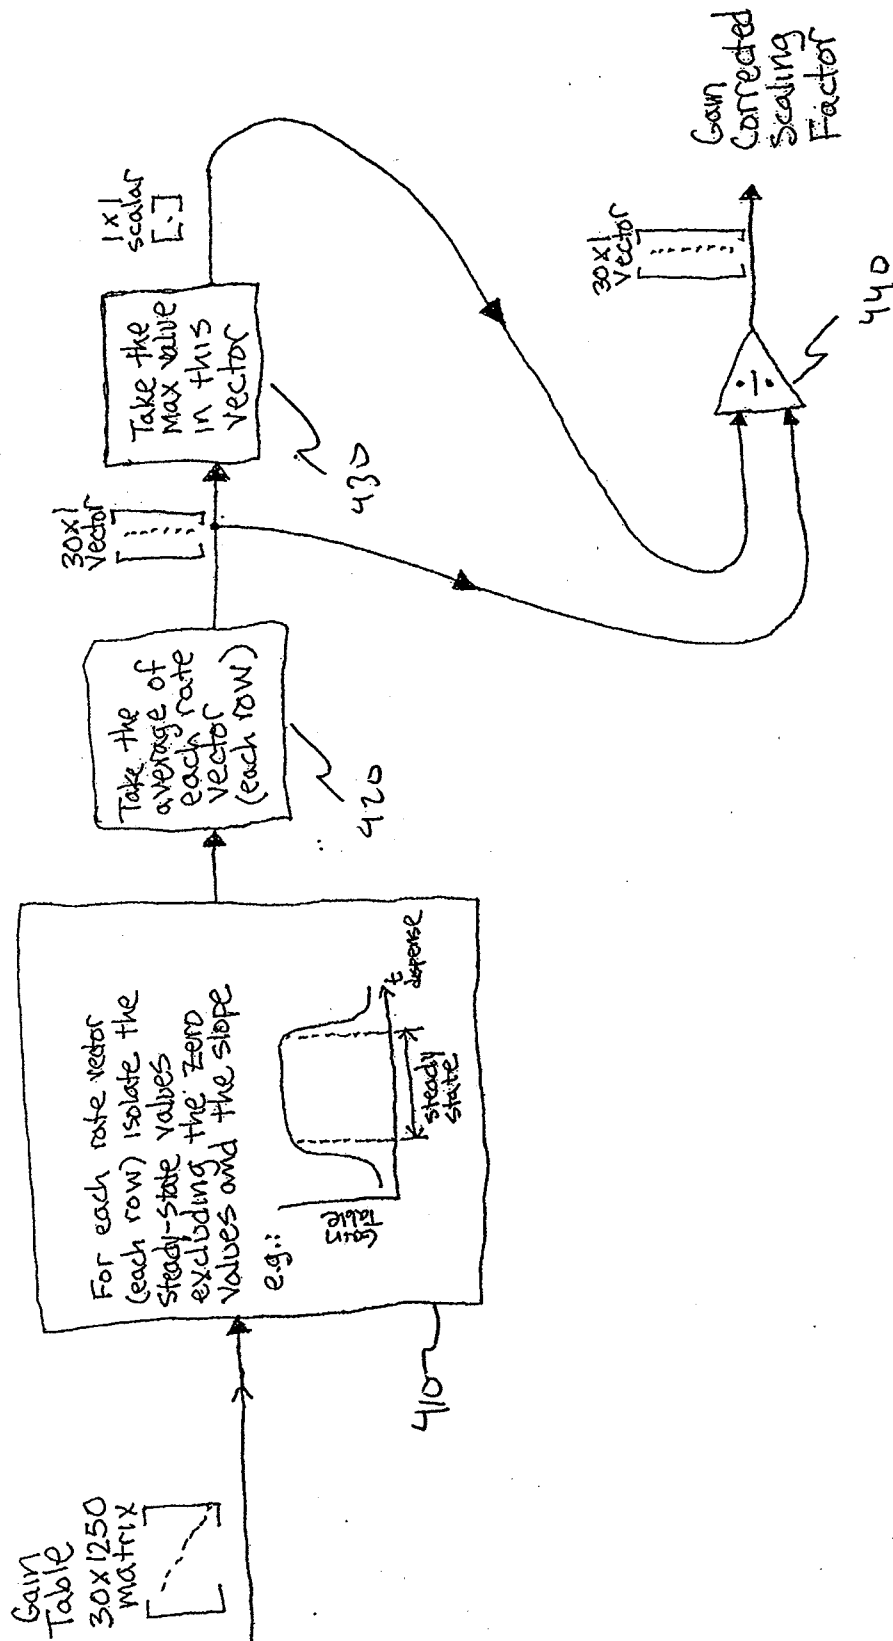 Gain
Table
30x1250
matrix
For each rate vector
(each row) isolate the
steady-state values
excluding the zero
values and the slope
e.g.:
Gain
Table
steady
state
t
dispense
410
Take the
average of
each rate
vector
(each row)
420
30x1
vector
Take the
Max value
in this
vector
430
1x1
scalar
[.]
÷
440
30x1
vector
Gain
Corrected
Scaling
Factor